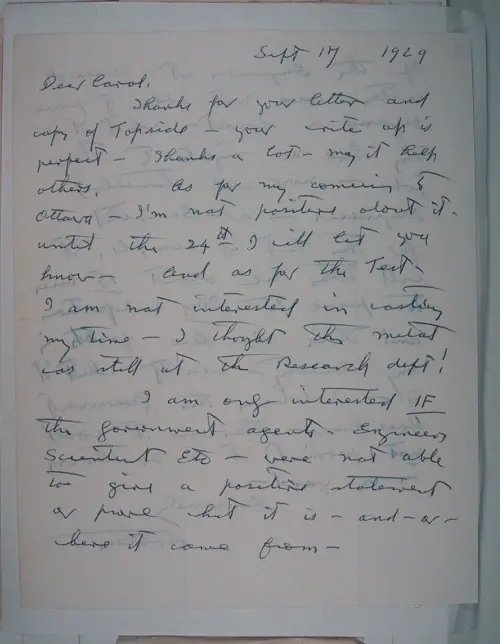 Sept 17 1969
Dear Carol.
Thanks for your letter and
copy of Topside - your write up is
perfect - Thanks a lot - may it help
others. As for my coming to
Ottawa - I'm not positive about it.
until the 24th I will let you
know - and as for the Test -
I am not interested in wasting
my time - I thought the metal
was still at the Research dept!
I am only interested IF
the government agents - Engineers
Scientist Etc - were not able
to give a positive statement
or prove what it is - and - or -
where it came from -